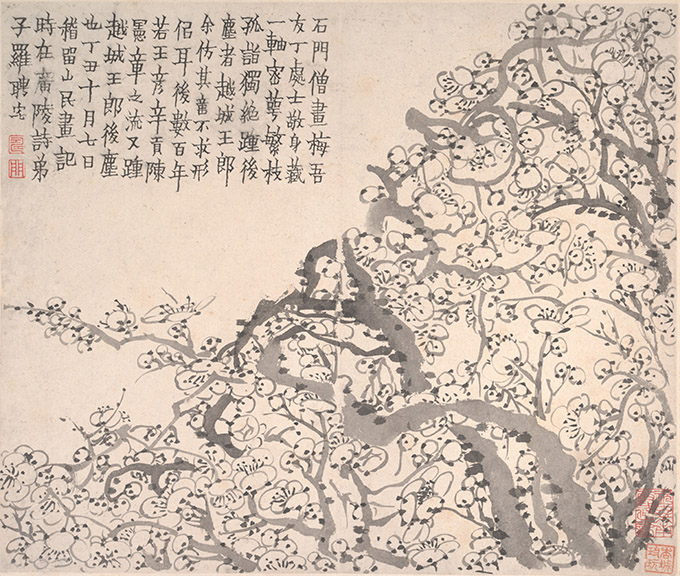 石門僧畫梅吾
友丁處士敬身藏
一軸密萼繁枝
孤詣獨絶踵後
塵者越城王郎
余仿其意不求形
侣耳後數百年
若王彥辛貢陳
憲章之流又踵
越城王郎後塵
也丁丑十月七日
稽留山民畫記
時在廣陵詩弟
子羅聘